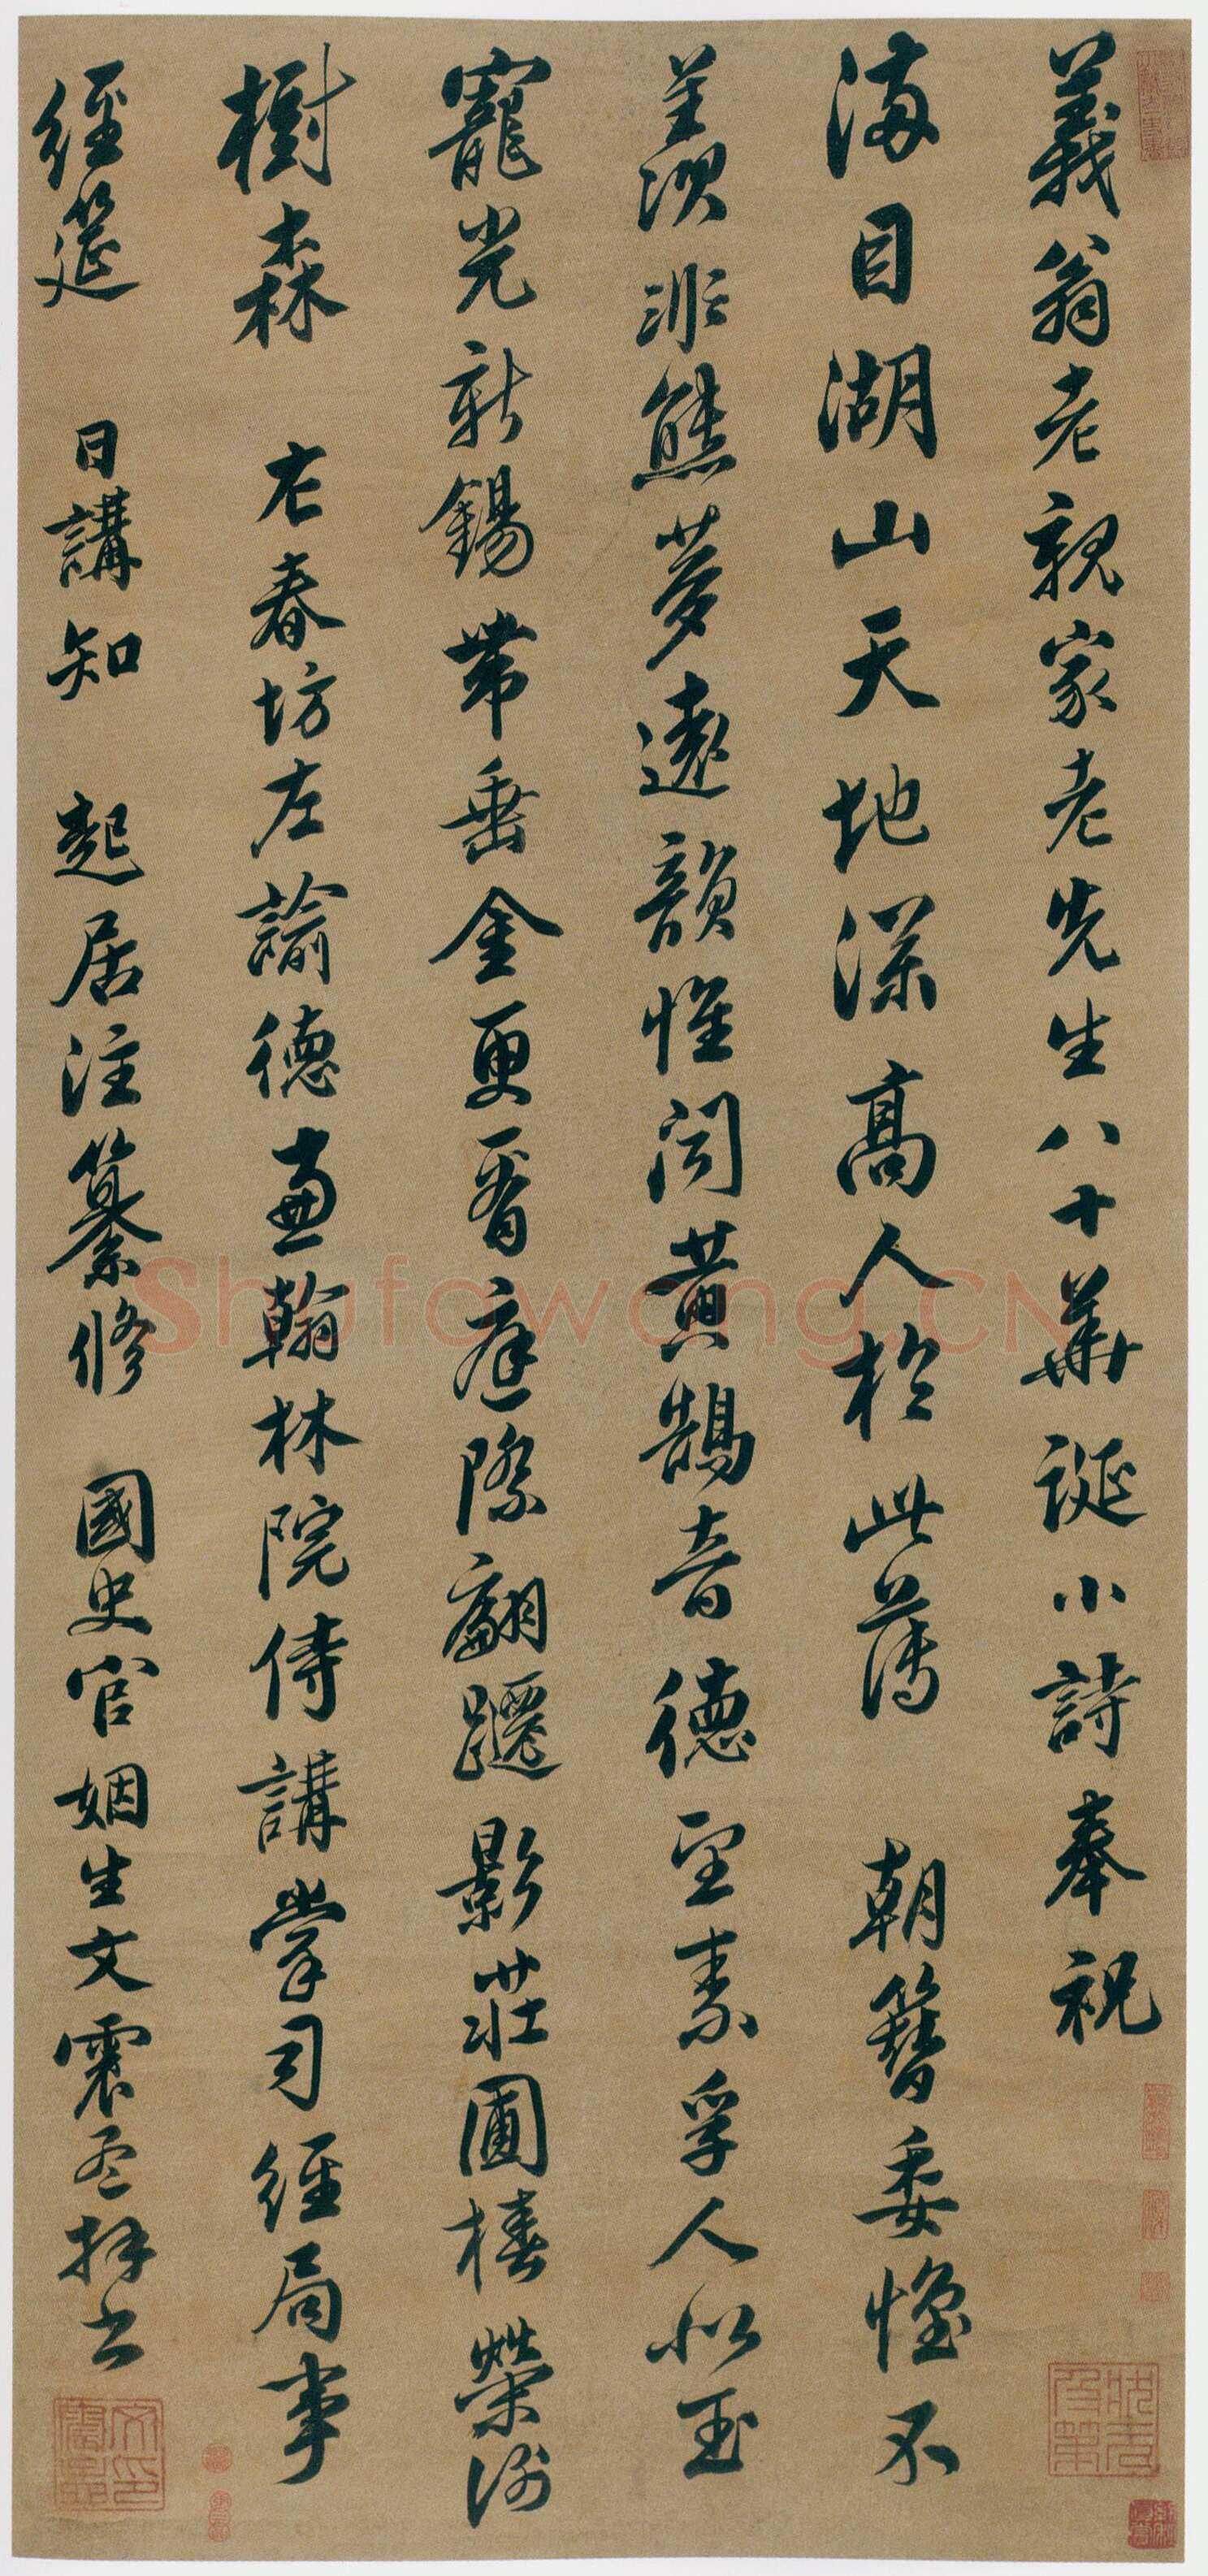 義翁老親家老先生八十華誕小詩奉祝
滿目湖山天地深高人於此薄 朝簪委懷不
羨非熊夢遠韻惟聞黃鵠音德望素孚人似玉
寵光新錫帶垂金更看庭際翩躚影莊圃椿榮謝
樹森 左春坊左諭德兼翰林院侍講掌司經局事
經筵 日講知 起居注纂修 國史官姻生文震孟拜書
文震孟印
狀元及第
Shufawang.CN